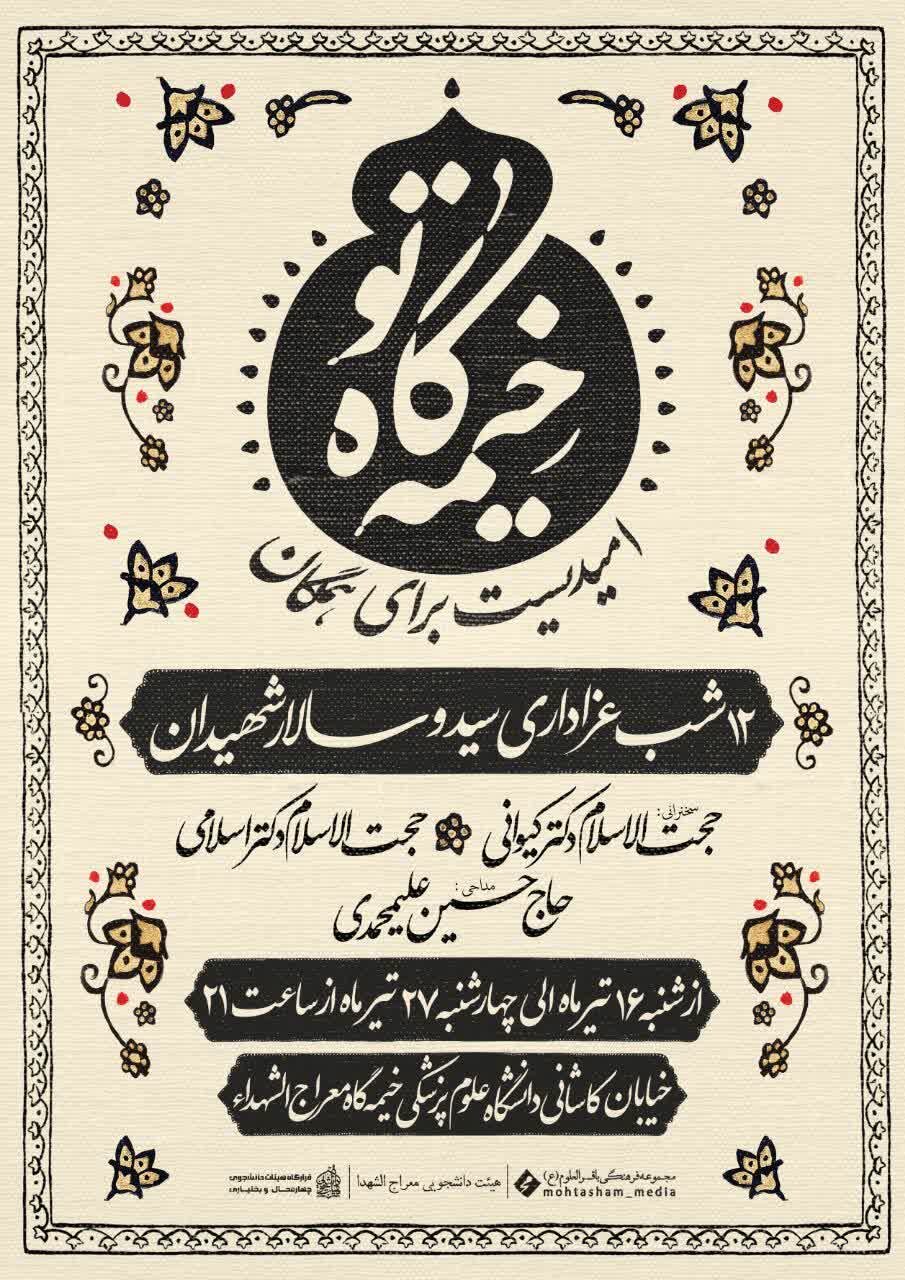 خیمه گاه تو
امیدیست برای همگان
۱۲ شب عزاداری سید و سالار شهیدان
سخنرانی:
حجت الاسلام دکتر کیوانی حجت الاسلام دکتر اسلامی
مداحی:
حاج حسین علیمحمدی
از شنبه ۱۶ تیر ماه الی چهارشنبه ۲۷ تیر ماه از ساعت ۲۱
خیابان کاشانی دانشگاه علوم پزشکی خیمه گاه معراج الشهداء
مجموعه فرهنگی باقرالعلوم (ع)
mohtasham_media
هیئت دانشجویی معراج الشهدا
قرارگاه هیئات دانشجویی
چهارمحال و بختیاری